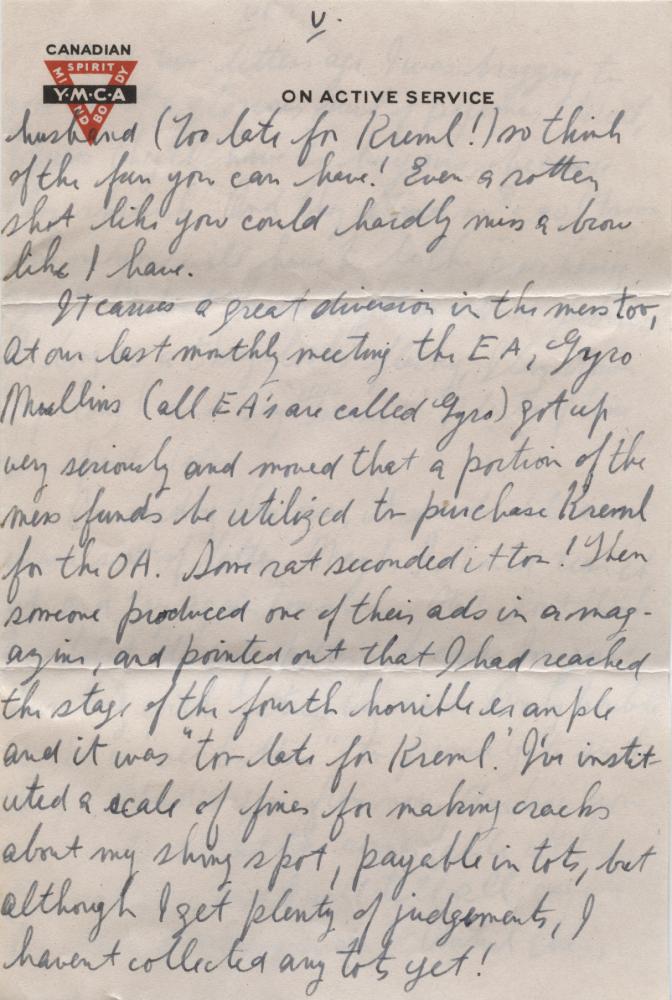 V.
CANADIAN
SPIRIT
MIND BODY
Y·M·C·A
ON ACTIVE SERVICE
husband (Too late for Kreml!) so think
of the fun you can have! Even a rotten
shot like you could hardly miss a brow
like I have.
It causes a great diversion in the mess too,
At our last monthly meeting the EA, Gyro
Mullins (all EA's are called Gyro) got up
very seriously and moved that a portion of the
mess funds be utilized to purchase Kreml
for the OA. Some rat seconded it too! Then
someone produced one of their ads in a mag-
azine, and pointed out that I had reached
the stage of the fourth horrible example
and it was "too late for Kreml." I've instit-
uted a scale of fines for making cracks
about my shiny spot, payable in tots, but
although I get plenty of judgements, I
havent collected any tots yet!